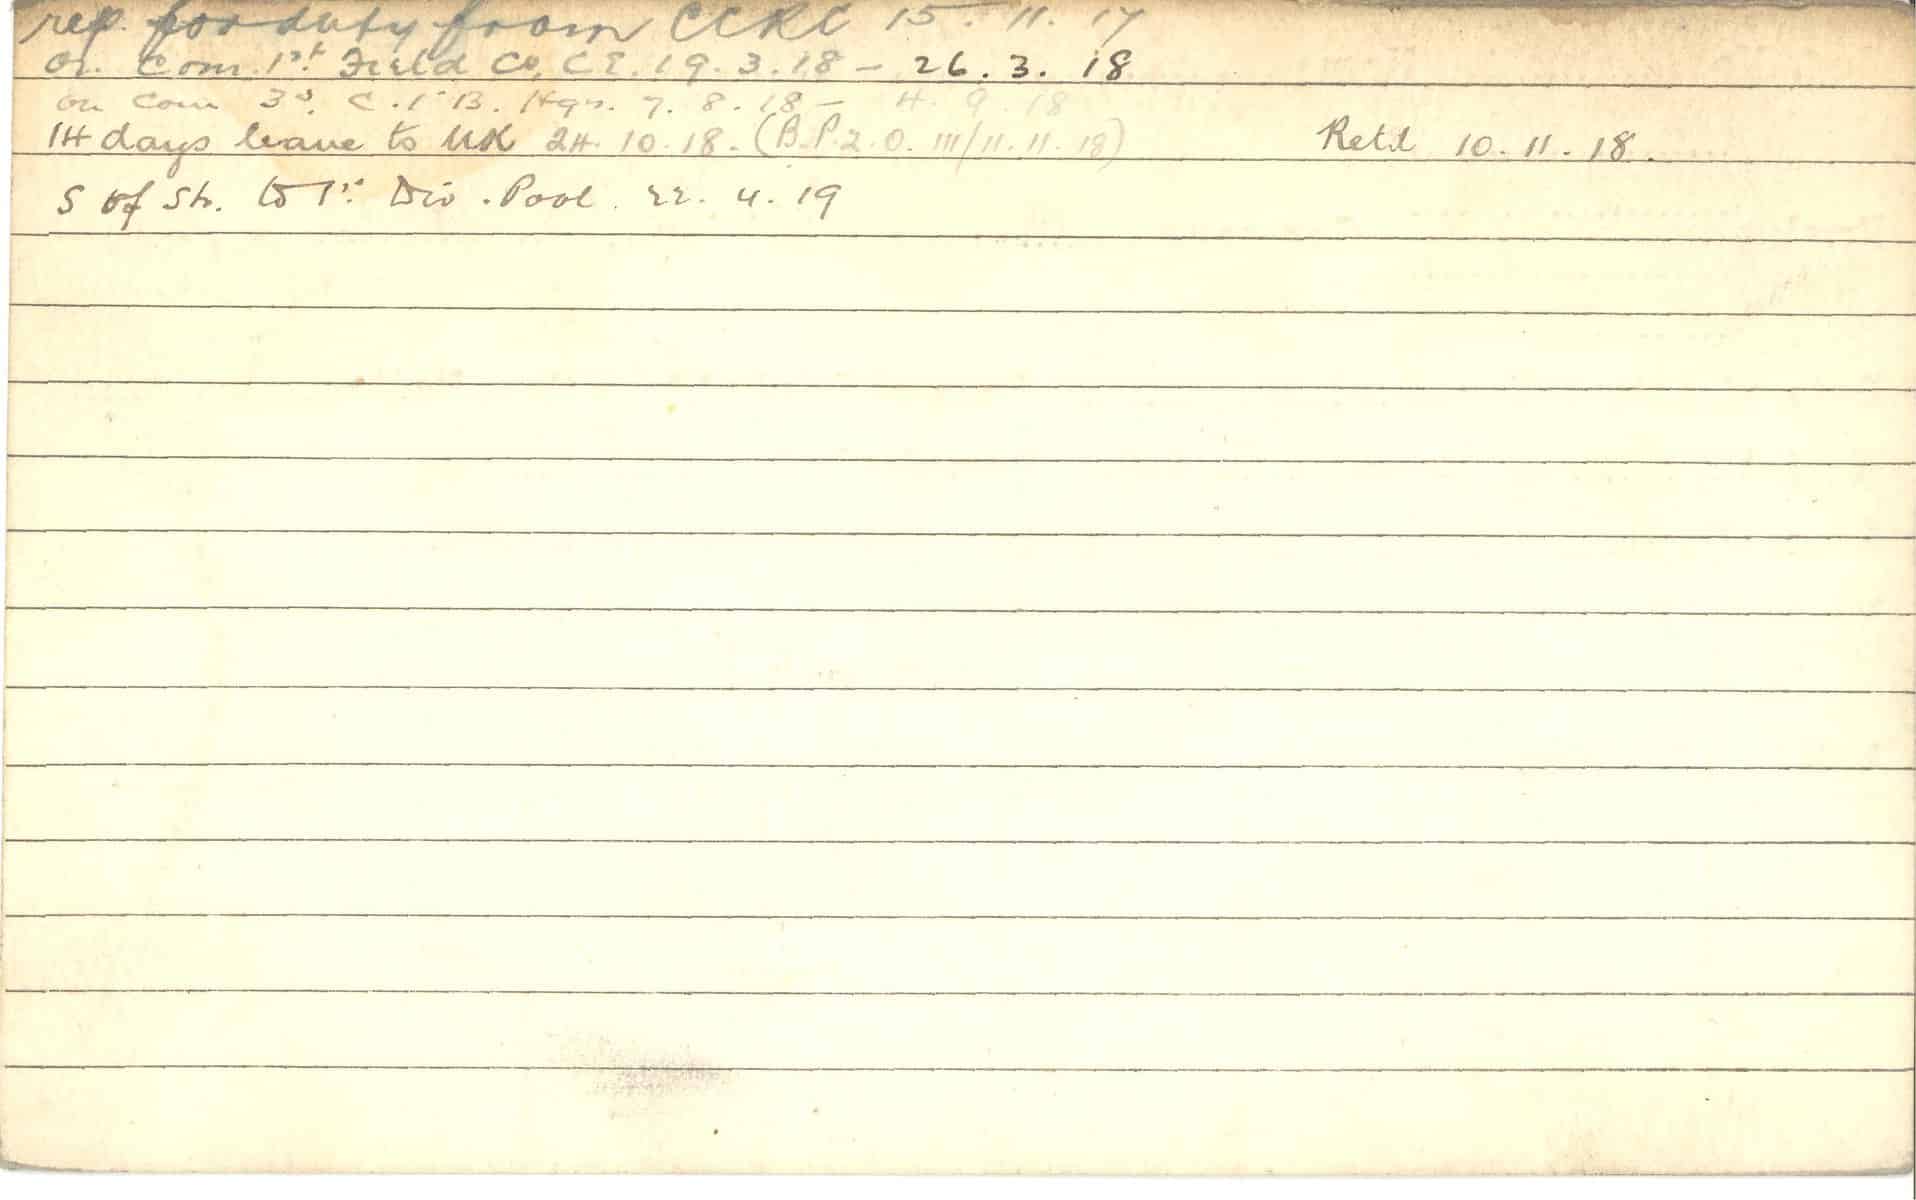 rep. for duty from CCRC 15. 11. 17
on. Com. 1st Field Co, C E. 19. 3. 18 - 26. 3. 18
on com 3rd. C. I B. Hqrs. 7. 8. 18 - 4. 9. 18
14 days leave to UK 24. 10. 18. (B.P.2.O. 111/11.11.18) Retd 10. 11. 18.
S of S tr. to 1st Div. Pool. 22. 4. 19